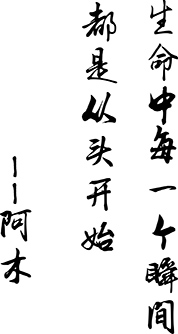 生命中每一个瞬间
都是从头开始
——阿木